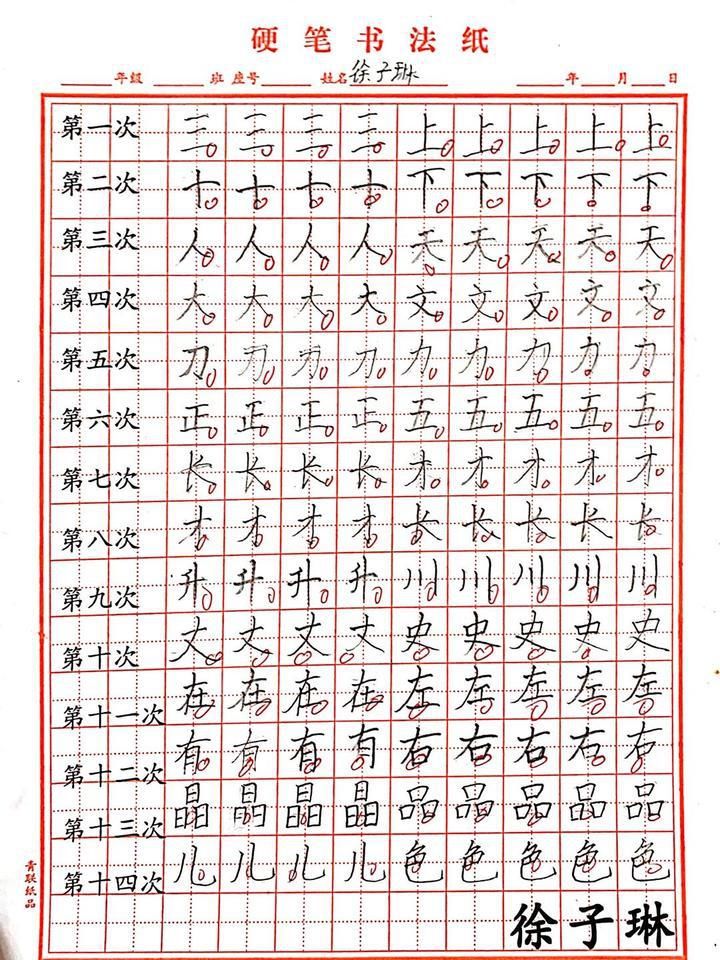 硬笔书法纸
年级 班 座号 姓名 徐子琳 年 月 日
第一次 三 三 三 三 上 上 上 上 上
第二次 十 十 十 十 下 下 下 下 下
第三次 人 人 人 人 天 天 天 天 天
第四次 大 大 大 大 文 文 文 文 文
第五次 刀 刀 刀 刀 力 力 力 力 力
第六次 正 正 正 正 五 五 五 五 五
第七次 长 长 长 长 才 才 才 才 才
第八次 才 才 才 才 长 长 长 长 长
第九次 升 升 升 升 川 川 川 川 川
第十次 丈 丈 丈 丈 史 史 史 史 史
第十一次 在 在 在 在 左 左 左 左 左
第十二次 有 有 有 有 右 右 右 右 右
第十三次 晶 晶 晶 晶 品 品 品 品 品
第十四次 儿 儿 儿 儿 色 色 色 色 色
青联纸品
徐子琳